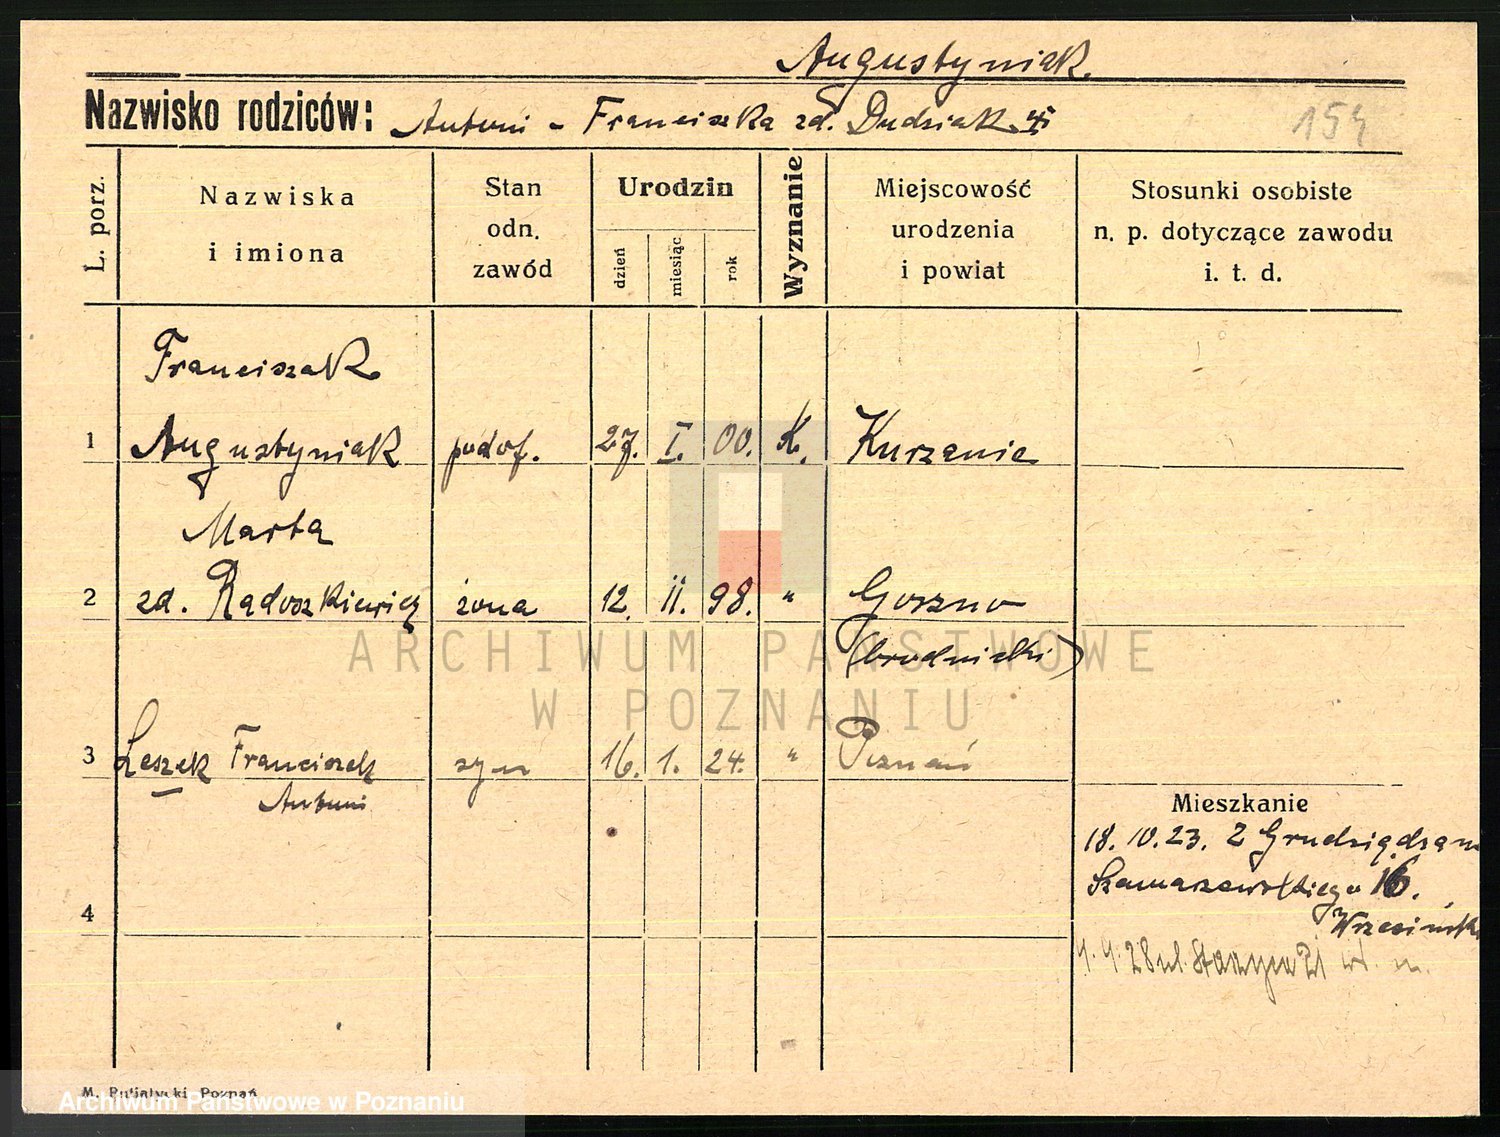 Augustyniak.
Nazwisko rodziców: Antoni - Franciszka zd. Dudziak
154
L. porz.
Nazwiska
i imiona
Stan
odn.
zawód
Urodzin
dzień
miesiąc
rok
Wyznanie
Miejscowość
urodzenia
i powiat
Stosunki osobiste
n. p. dotyczące zawodu
i. t. d.
Franciszek
1 Augustyniak podof. 27. I. 00. K. Kurzanie
Marta
2 zd. Radoszkiewicz żona 12. II. 98. " Gorzno
(brodnicki)
ARCHIWUM PAŃSTWOWE
W POZNANIU
3 Leszek Franciszek syn 16. 1. 24. " Poznań
Antoni
Mieszkanie
18. 10. 23. Z Grudziądza
Szamarzewskiego 16.
4
Wrzesińsk
4. 9. 28 ul.
M. Putiatycki Poznań
Archiwum Państwowe w Poznaniu